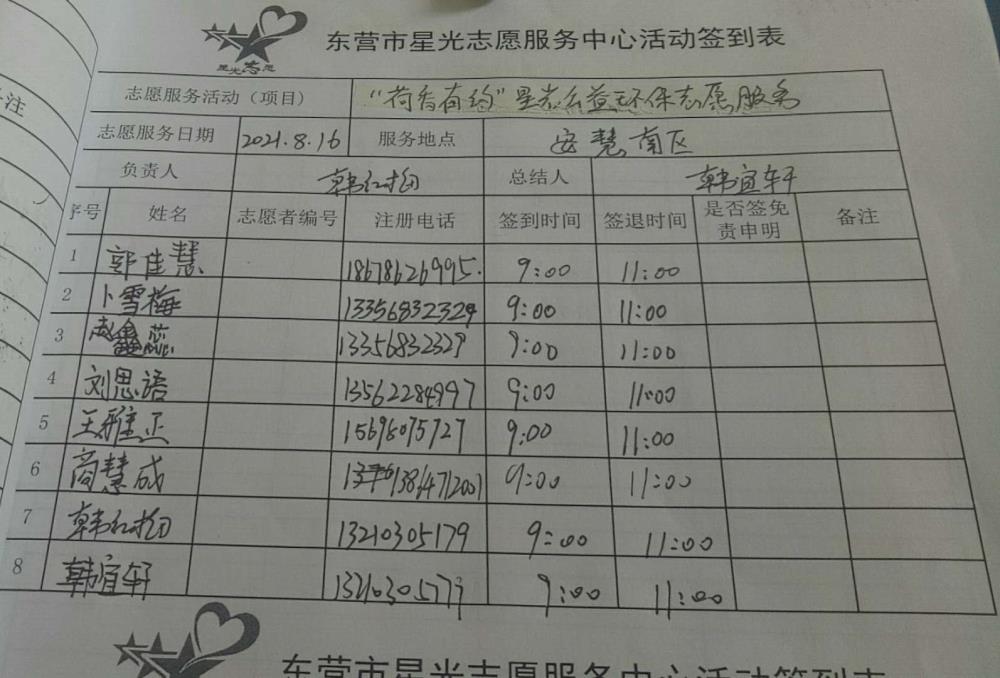 备注
星光志愿
东营市星光志愿服务中心活动签到表
志愿服务活动（项目） “荷香有约”星光公益环保志愿服务
志愿服务日期 2021.8.16 服务地点 安慧南区
负责人 韩红梅 总结人 韩宜轩
序号 姓名 志愿者编号 注册电话 签到时间 签退时间 是否签免责申明 备注
1 郭佳慧 18678626995. 9:00 11:00
2 卜雪梅 13356832329 9:00 11:00
3 赵鑫蕊 13356832329 9:00 11:00
4 刘思语 13562284997 9:00 11:00
5 王雅正 15695075727 9:00 11:00
6 商慧成 13864712001 9:00 11:00
7 韩红梅 13210305179 9:00 11:00
8 韩宜轩 9:00 11:00
东营市星光志愿服务中心活动签到表